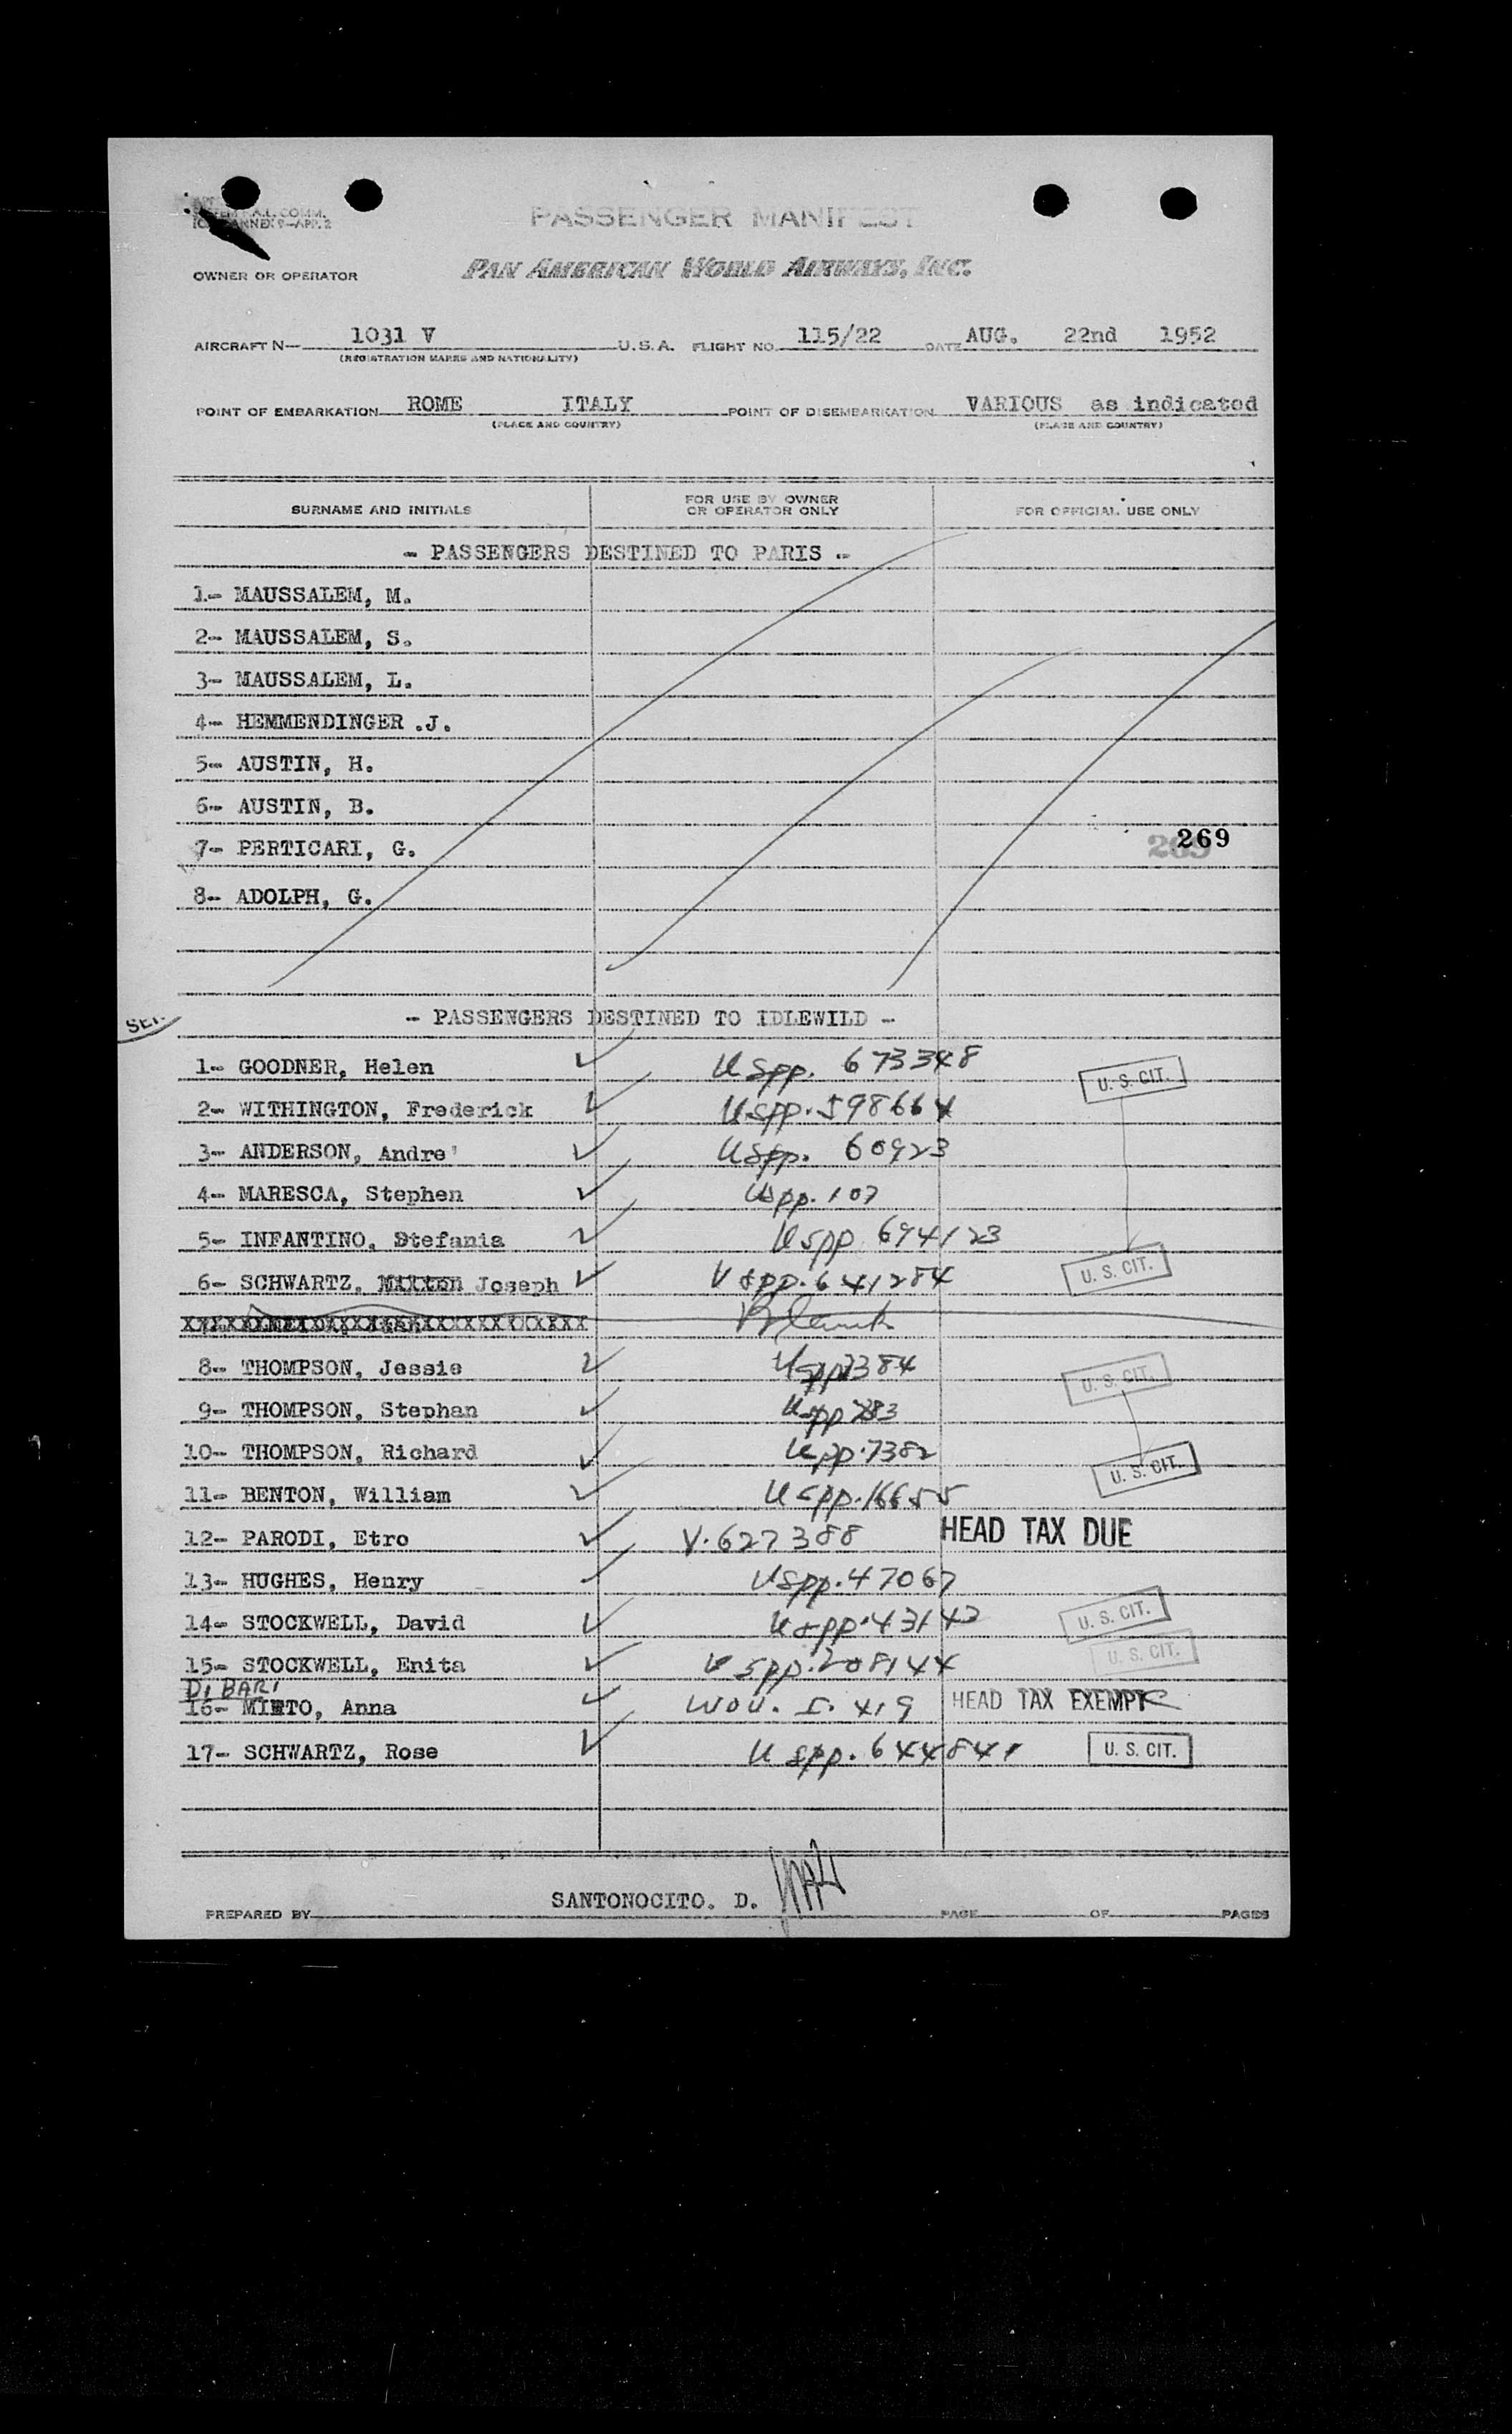 PASSENGER MANIFEST
OWNER OR OPERATOR PAN AMERICAN WORLD AIRWAYS, INC.
AIRCRAFT N— 1031 V U.S.A. FLIGHT NO. 115/22 DATE AUG. 22nd 1952
(REGISTRATION MARKS AND NATIONALITY)
POINT OF EMBARKATION ROME ITALY POINT OF DISEMBARKATION VARIOUS as indicated
(PLACE AND COUNTRY) (PLACE AND COUNTRY)
SURNAME AND INITIALS FOR USE BY OWNER OR OPERATOR ONLY FOR OFFICIAL USE ONLY
- PASSENGERS DESTINED TO PARIS -
1- MAUSSALEM, M.
2- MAUSSALEM, S.
3- MAUSSALEM, L.
4- HEMMENDINGER .J.
5- AUSTIN, H.
6- AUSTIN, B.
7- PERTICARI, G. 269
8- ADOLPH, G.
- PASSENGERS DESTINED TO IDLEWILD -
1- GOODNER, Helen ✓ USpp. 673348 U.S. CIT.
2- WITHINGTON, Frederick ✓ USpp. 598664
3- ANDERSON, Andre' ✓ USpp. 60923
4- MARESCA, Stephen ✓ USpp. 107
5- INFANTINO, Stefania ✓ USpp 694123
6- SCHWARTZ, Joseph ✓ USpp. 641284 U.S. CIT.
Blank
8- THOMPSON, Jessie ✓ USpp 7384 U.S. CIT.
9- THOMPSON, Stephan ✓ USpp 783
10- THOMPSON, Richard ✓ USpp. 7382 U.S. CIT.
11- BENTON, William ✓ USpp. 16655
12- PARODI, Etro ✓ V. 627388 HEAD TAX DUE
13- HUGHES, Henry ✓ USpp. 47067
14- STOCKWELL, David ✓ USpp. 43143 U.S. CIT.
15- STOCKWELL, Enita ✓ USpp. 208144 U.S. CIT.
DI BARI
16- MINTO, Anna ✓ I. 419 HEAD TAX EXEMPT
17- SCHWARTZ, Rose ✓ USpp. 644841 U.S. CIT.
PREPARED BY SANTONOCITO. D. PAGE OF PAGES